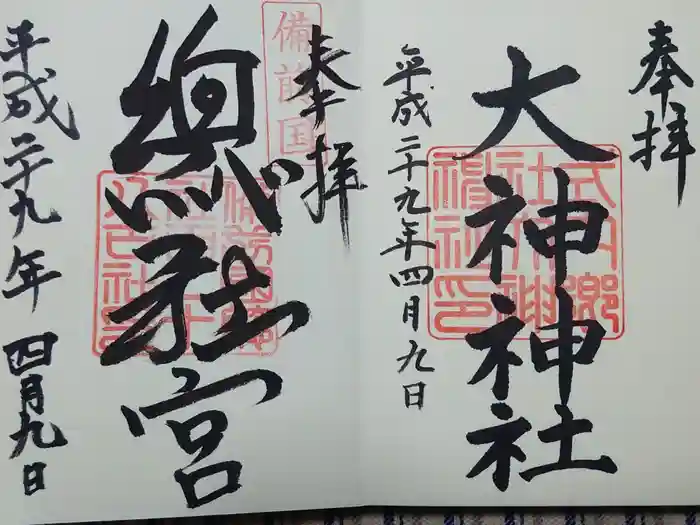 奉拝
大神神社
平成二十九年四月九日
奉拝
備前国
總社宮
平成二十九年四月九日